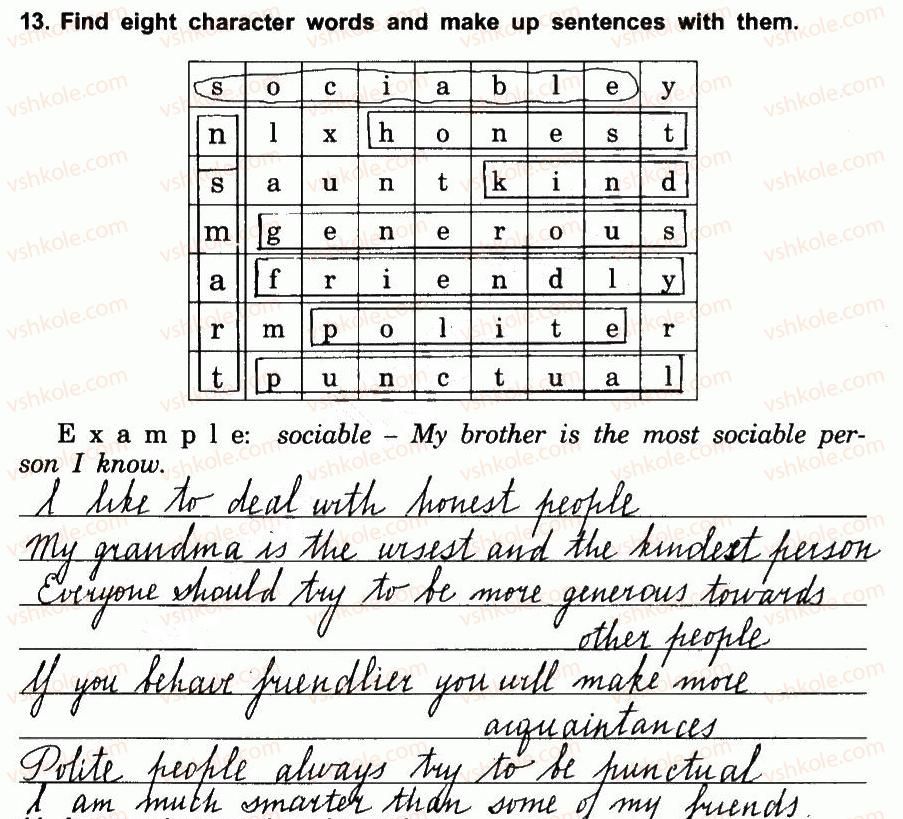 13. Find eight character words and make up sentences with them.
s o c i a b l e y
n l x h o n e s t
s a u n t k i n d
m g e n e r o u s
a f r i e n d l y
r m p o l i t e r
t p u n c t u a l
E x a m p l e: sociable – My brother is the most sociable per-
son I know.
I like to deal with honest people
My grandma is the wisest and the kindest person
Everyone should try to be more generous towards
other people
If you behave friendlier you will make more
acquaintances
Polite people always try to be punctual
I am much smarter than some of my friends.
vshkole.com